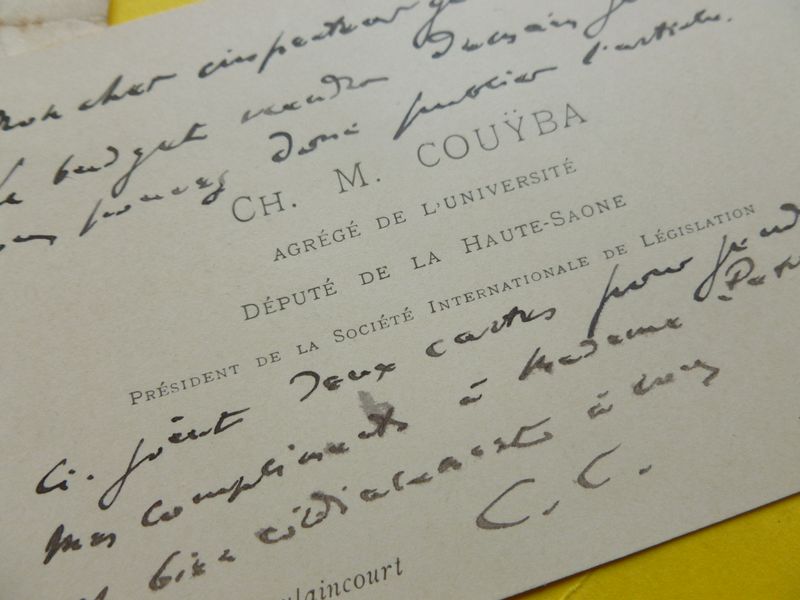 Mon cher inspecteur
le budget viendra demain
vous pouvez donc publier l'article.
CH. M. COUŸBA
AGRÉGÉ DE L'UNIVERSITÉ
DÉPUTÉ DE LA HAUTE-SAONE
PRÉSIDENT DE LA SOCIÉTÉ INTERNATIONALE DE LÉGISLATION
Ci-joint deux cartes pour
Mes compliments à Madame
et bien cordialement à vous
C. C.
laincourt